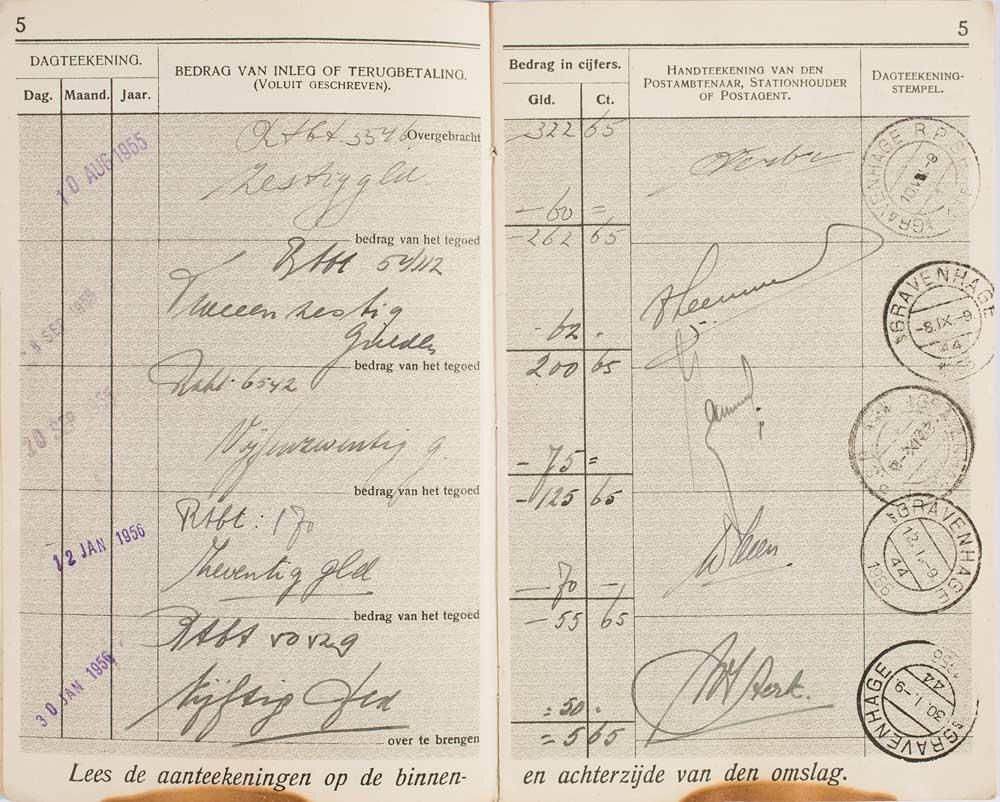 5
DAGTEEKENING.
Dag. Maand. Jaar.
BEDRAG VAN INLEG OF TERUGBETALING.
(VOLUIT GESCHREVEN).
Rtbt. 5546 Overgebracht
10 AUG 1955
Zestig gld.
bedrag van het tegoed
Rtbt
Tweeenzestig
Gulden
SEP
bedrag van het tegoed
Rtbt. 6542
Vijfenzeventig g.
bedrag van het tegoed
Rtbt: 170
12 JAN 1956
Zeventig gld
bedrag van het tegoed
Rtbt
30 JAN 1956
Vijftig Gld
over te brengen
Lees de aanteekeningen op de binnen-
5
Bedrag in cijfers.
Gld. Ct.
HANDTEEKENING VAN DEN
POSTAMBTENAAR, STATIONHOUDER
OF POSTAGENT.
DAGTEEKENING-
STEMPEL.
322 65
- 60 =
- 262 65
- 62 -
200 65
- 75 =
- 125 65
- 70 -
- 55 65
= 50 -
= 5 65
'SGRAVENHAGE
-8.IX.-9
44
'SGRAVENHAGE
12.I.-9
44
1956
'SGRAVENHAGE
30.I.-9
44
1956
en achterzijde van den omslag.